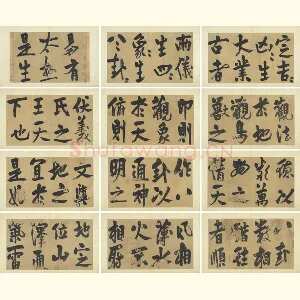 易有
太極
是生
兩儀
生四
象生
八卦
定吉
凶生
大業
古者
伏羲
氏之
王天
下也
仰則
觀象
於天
俯則
觀法
於地
觀鳥
獸之
文與
地之
宜於
是始
作八
卦以
通神
明之
德以
類萬
物之
情天
地定
位山
澤通
氣雷
風相
薄水
火不
相射
八卦
相錯
數往
者順